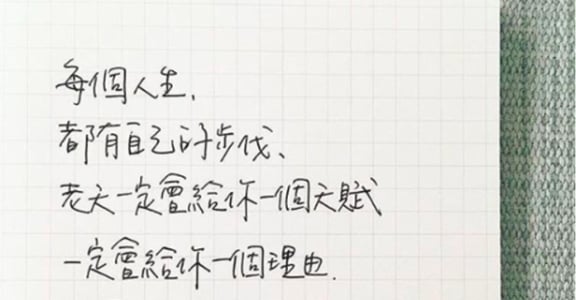 每個人生,
都有自己的步伐、
老天一定會給你一個天賦
一定會給你一個理由.